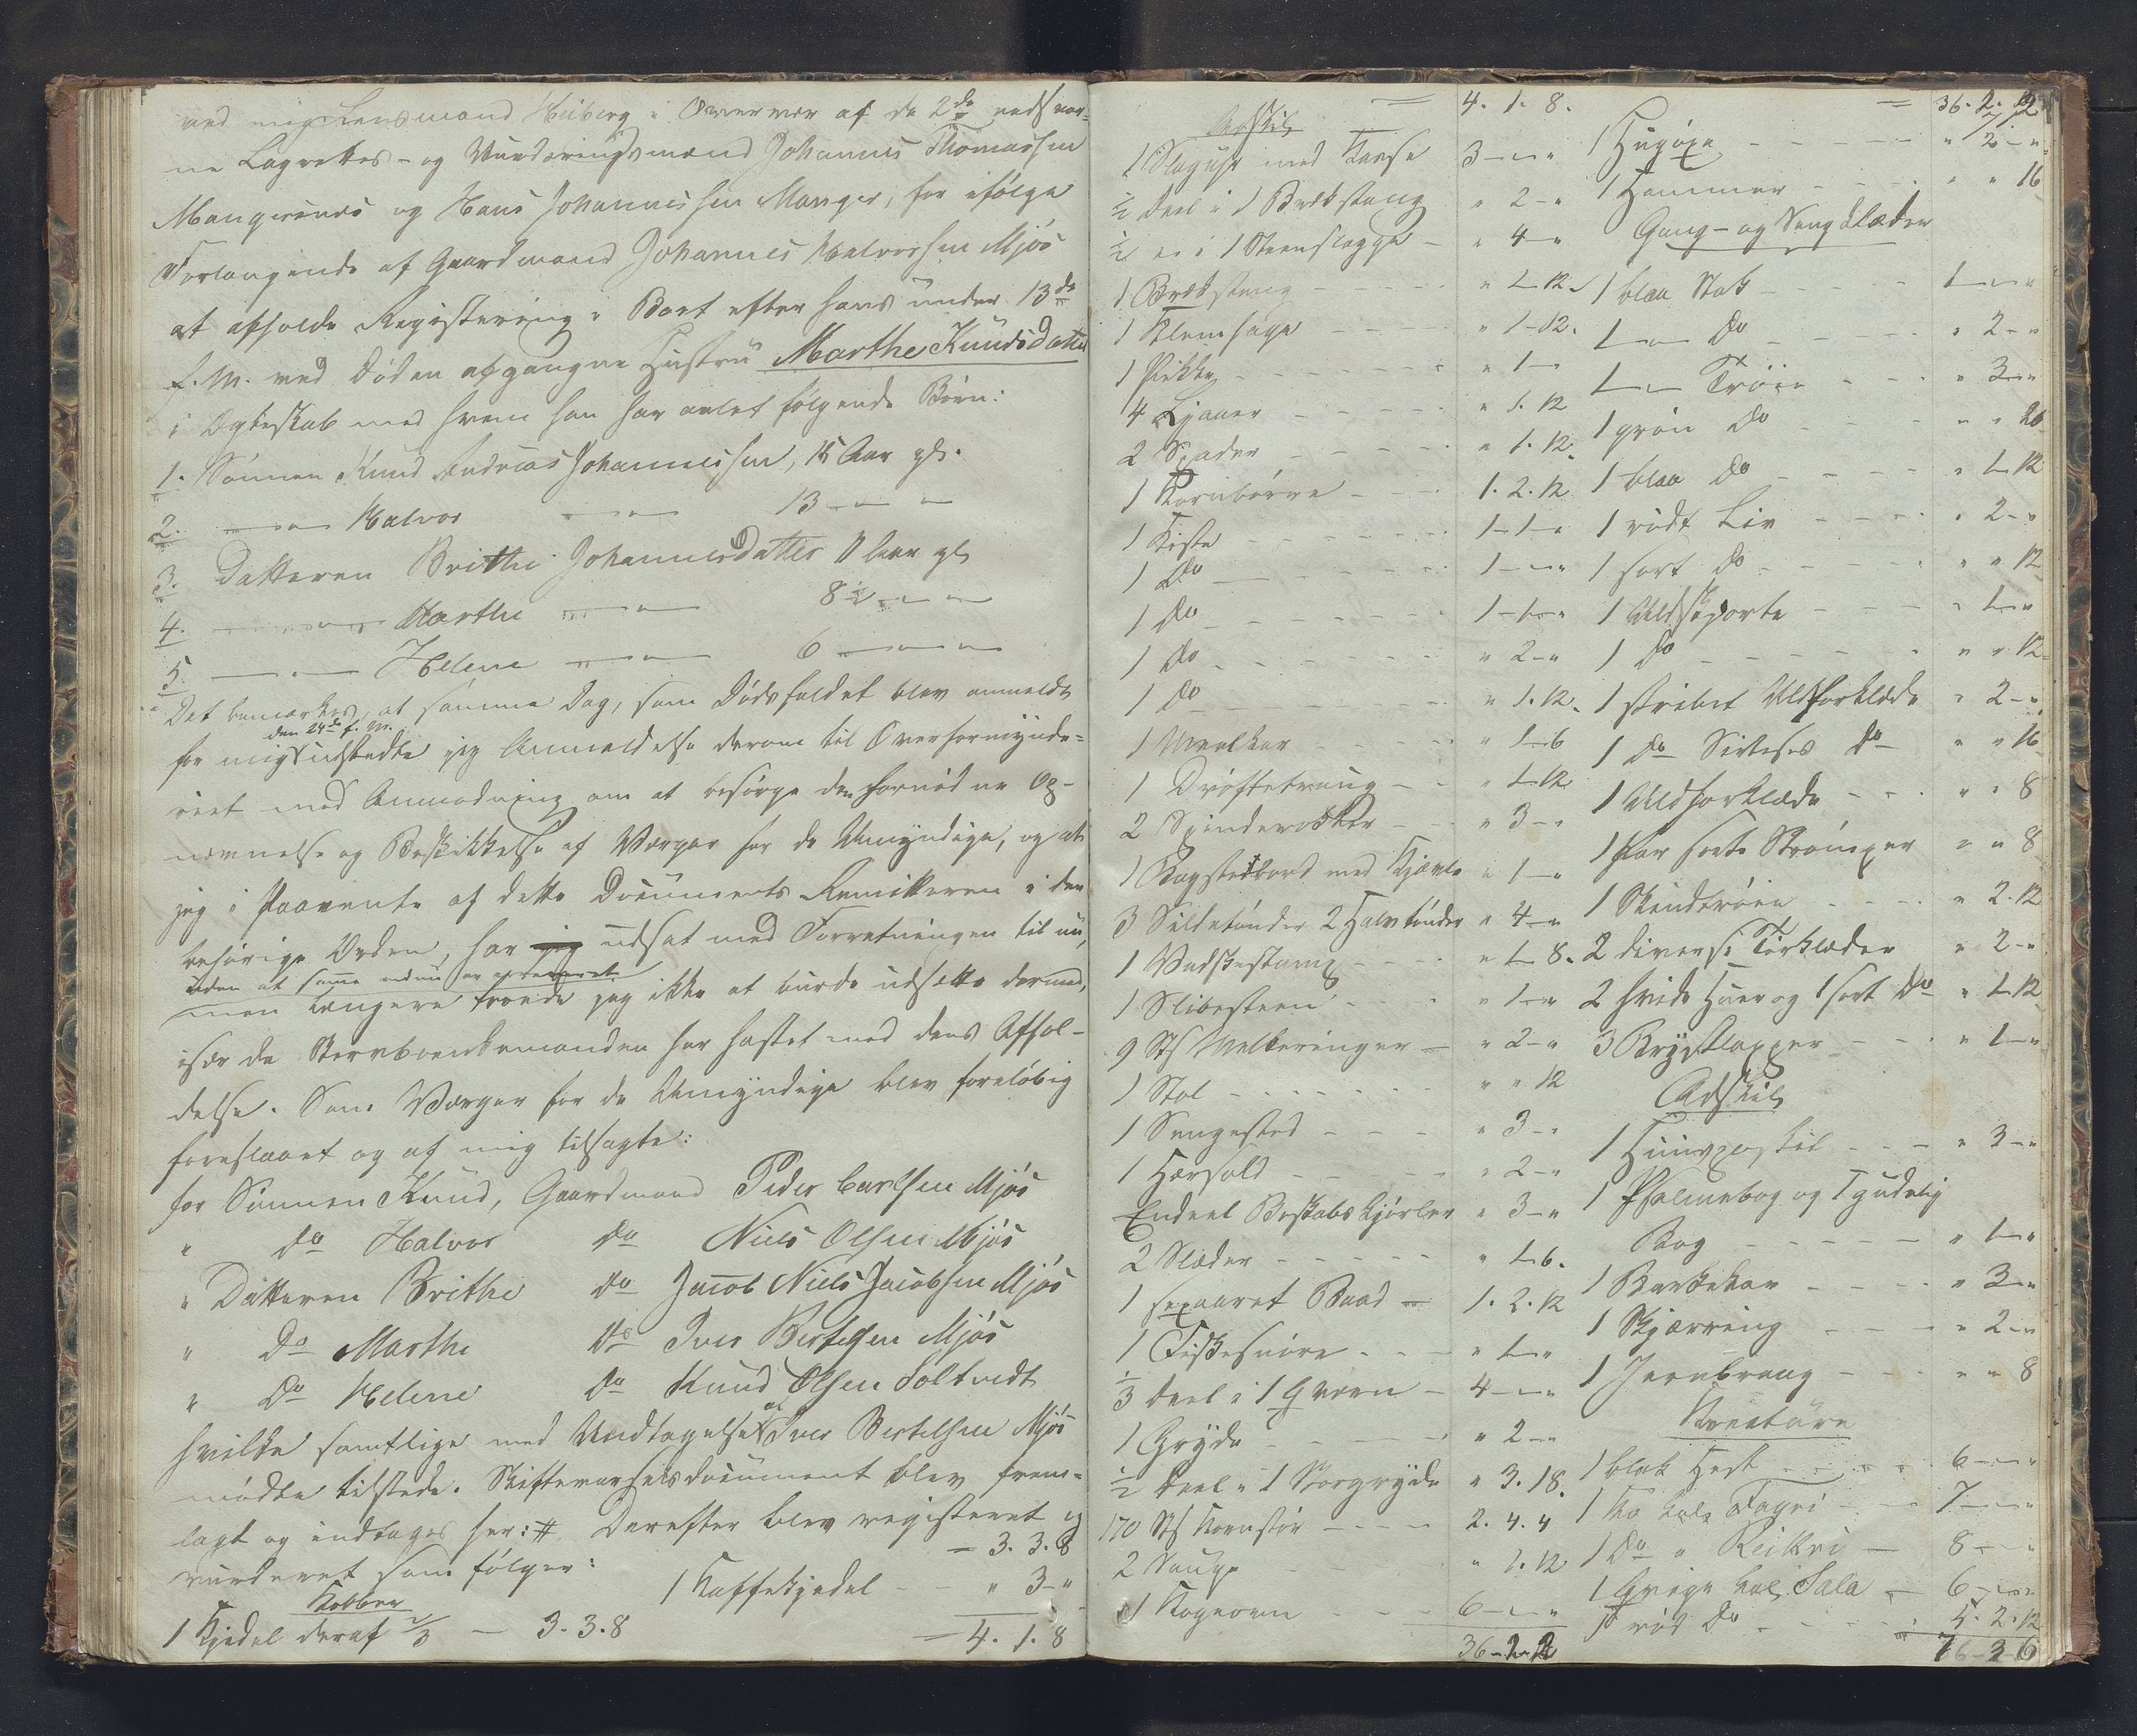 ved mig Lensmand Heiberg i Overvær af de 2de nedskrev-
ne Lagrettes- og Vurderingsmænd Johannes Thomassen
Mangersnes og Hans Johannessen Manger, for ifølge
Forlangende af Gaardmand Johannes Halvorsen Mjøs
at afholde Registrering i Boet efter hans under 13de
f. M. ved Døden afgangne Hustru Marthe Knudsdatter
i Ægteskab med hvem han har avlet følgende Børn:
1. Sønnen Knud Andreas Johannessen, 15 Aar gl.
2. —"— Halvor —"— 13 —"—
3. Datteren Brithe Johannesdatter 11 Aar gl
4. —"— Marthe —"— 8½ —"—
5. —"— Helene —"— 6 —"—
Det bemærkes, at samme Dag, som Dødsfaldet blev anmeldt
den 24de f. M.
for mig udstedte jeg Anmeldelse derom til Overformynde-
riet med Anmodning om at besørge den fornødne Op-
nævnelse og Beskikkelse af Værger for de Umyndige, og at
jeg i Paavente af dette Documents Remitteren i den
behørige Orden, har udsat med Forretningen til nu,
uden at samme endnu er
men længere troede jeg ikke at burde udsætte dermed,
især da Stervboenkemanden har hastet med dens Afhol-
delse. Som Værger for de Umyndige blev foreløbig
foreslaaet og af mig tilsagte:
for Sønnen Knud, Gaardmand Peder Carlsen Mjøs
" do Halvor do Niels Olsen Mjøs
" Datteren Brithe do Jacob Niels Jacobsen Mjøs
" Do Marthe do Iver Bertelsen Mjøs
" Do Helene do Knud Olsen Soltvedt
hvilke samtlige med Undtagelse af Iver Bertelsen Mjøs
mødte tilstede. Skiftevarselsdocument blev frem-
lagt og indtages her: # Derefter blev registeret og
vurderet som følger: = 3. 3. 8
Kobber
1 Kjedel deraf 2/3 — 3. 3. 8
1 Kaffekjedel — " 3 — "
= 4. 1. 8
= 4. 1. 8.
Adskil
1 Slaguhr med Kasse 3 — " "
½ Deel i 1 Brækstang " 2 — "
½ " i 1 Steenslægge — " 4 — "
1 Brækstang " 1 — 12.
1 Klemsage " 1 — 12.
1 Pikke " 1 — "
4 Ljaaer " 1. 12
2 Spader " 1. 12.
1 Kornbørre 1. 2. 12
1 Kiste 1 — 1 — "
1 Do 1 — " "
1 do 1 — 1 — "
1 do " 2 — "
1 do " 1. 12.
1 Meelkar " 1 — 6
1 Drøftetraug " 1 — 12
2 Spinderokker " 3 — "
1 Bagstebord med Kjævle " 1 — "
3 Sildetønder 2 Halvtønder " 4 — "
1 Vadskestamp " 1 — 8.
1 Slibesteen " 1 — "
9 Stk Melkeringer — " 2 — "
1 Stol " " 12
1 Sengested " 3 — "
1 Hærsold " 2 — "
Endeel Boskabskjørler " 3 — "
2 Slæder " 1 — 6.
1 sexaaret Baad — 1. 2. 12
1 Fiskesnøre " 1 — "
1/3 Deel i 1 Qværn — 4 — " "
1 Gryde " 2 — "
½ Deel i 1 Storgryde " 3. 18.
170 Stk Kornstør 2. 4. 4
2 Sauge " 1. 12
1 Kogeovn 6 — " "
= 36. 2. 12
1 Hugøxe " 2 — "
1 Hammer " " 16
Gang- og Sengklæder
1 blaa Stak 1 — " "
1 — " — do " 2 — "
1 — " — Trøie " 3 — "
1 grøn do " " 20
1 blaa do " 1 — 12
1 rødt Liv " 2 — "
1 sort do " " 12
1 Uldskjorte " 1 — "
1 do " " 12
1 stribet Uldforklæde " 2 — "
1 do Sirtses do " " 16
1 Uldforklæde " " 8
1 Par sorte Strømper " " 8
1 Skindtrøie " 2. 12
2 diverse Tørklæder " 2 — "
2 hvide Huer og 1 sort do " 1 — 12
3 Brystlapper " 1 — "
Adskil
" 3 — "
1 Psalmebog og 1 gudelig
Bog " 1 — "
1 Barkekar " 3 — "
1 Skjærring " 2 — "
" " 8
Kreature
1 blak Hest 6 — " "
1 Ko kal. Fagri — 7 — " "
1 do " Reikri — 8 — "
1 Qvige kal. Sala — 6 — " "
1 rød do 5. 2. 12